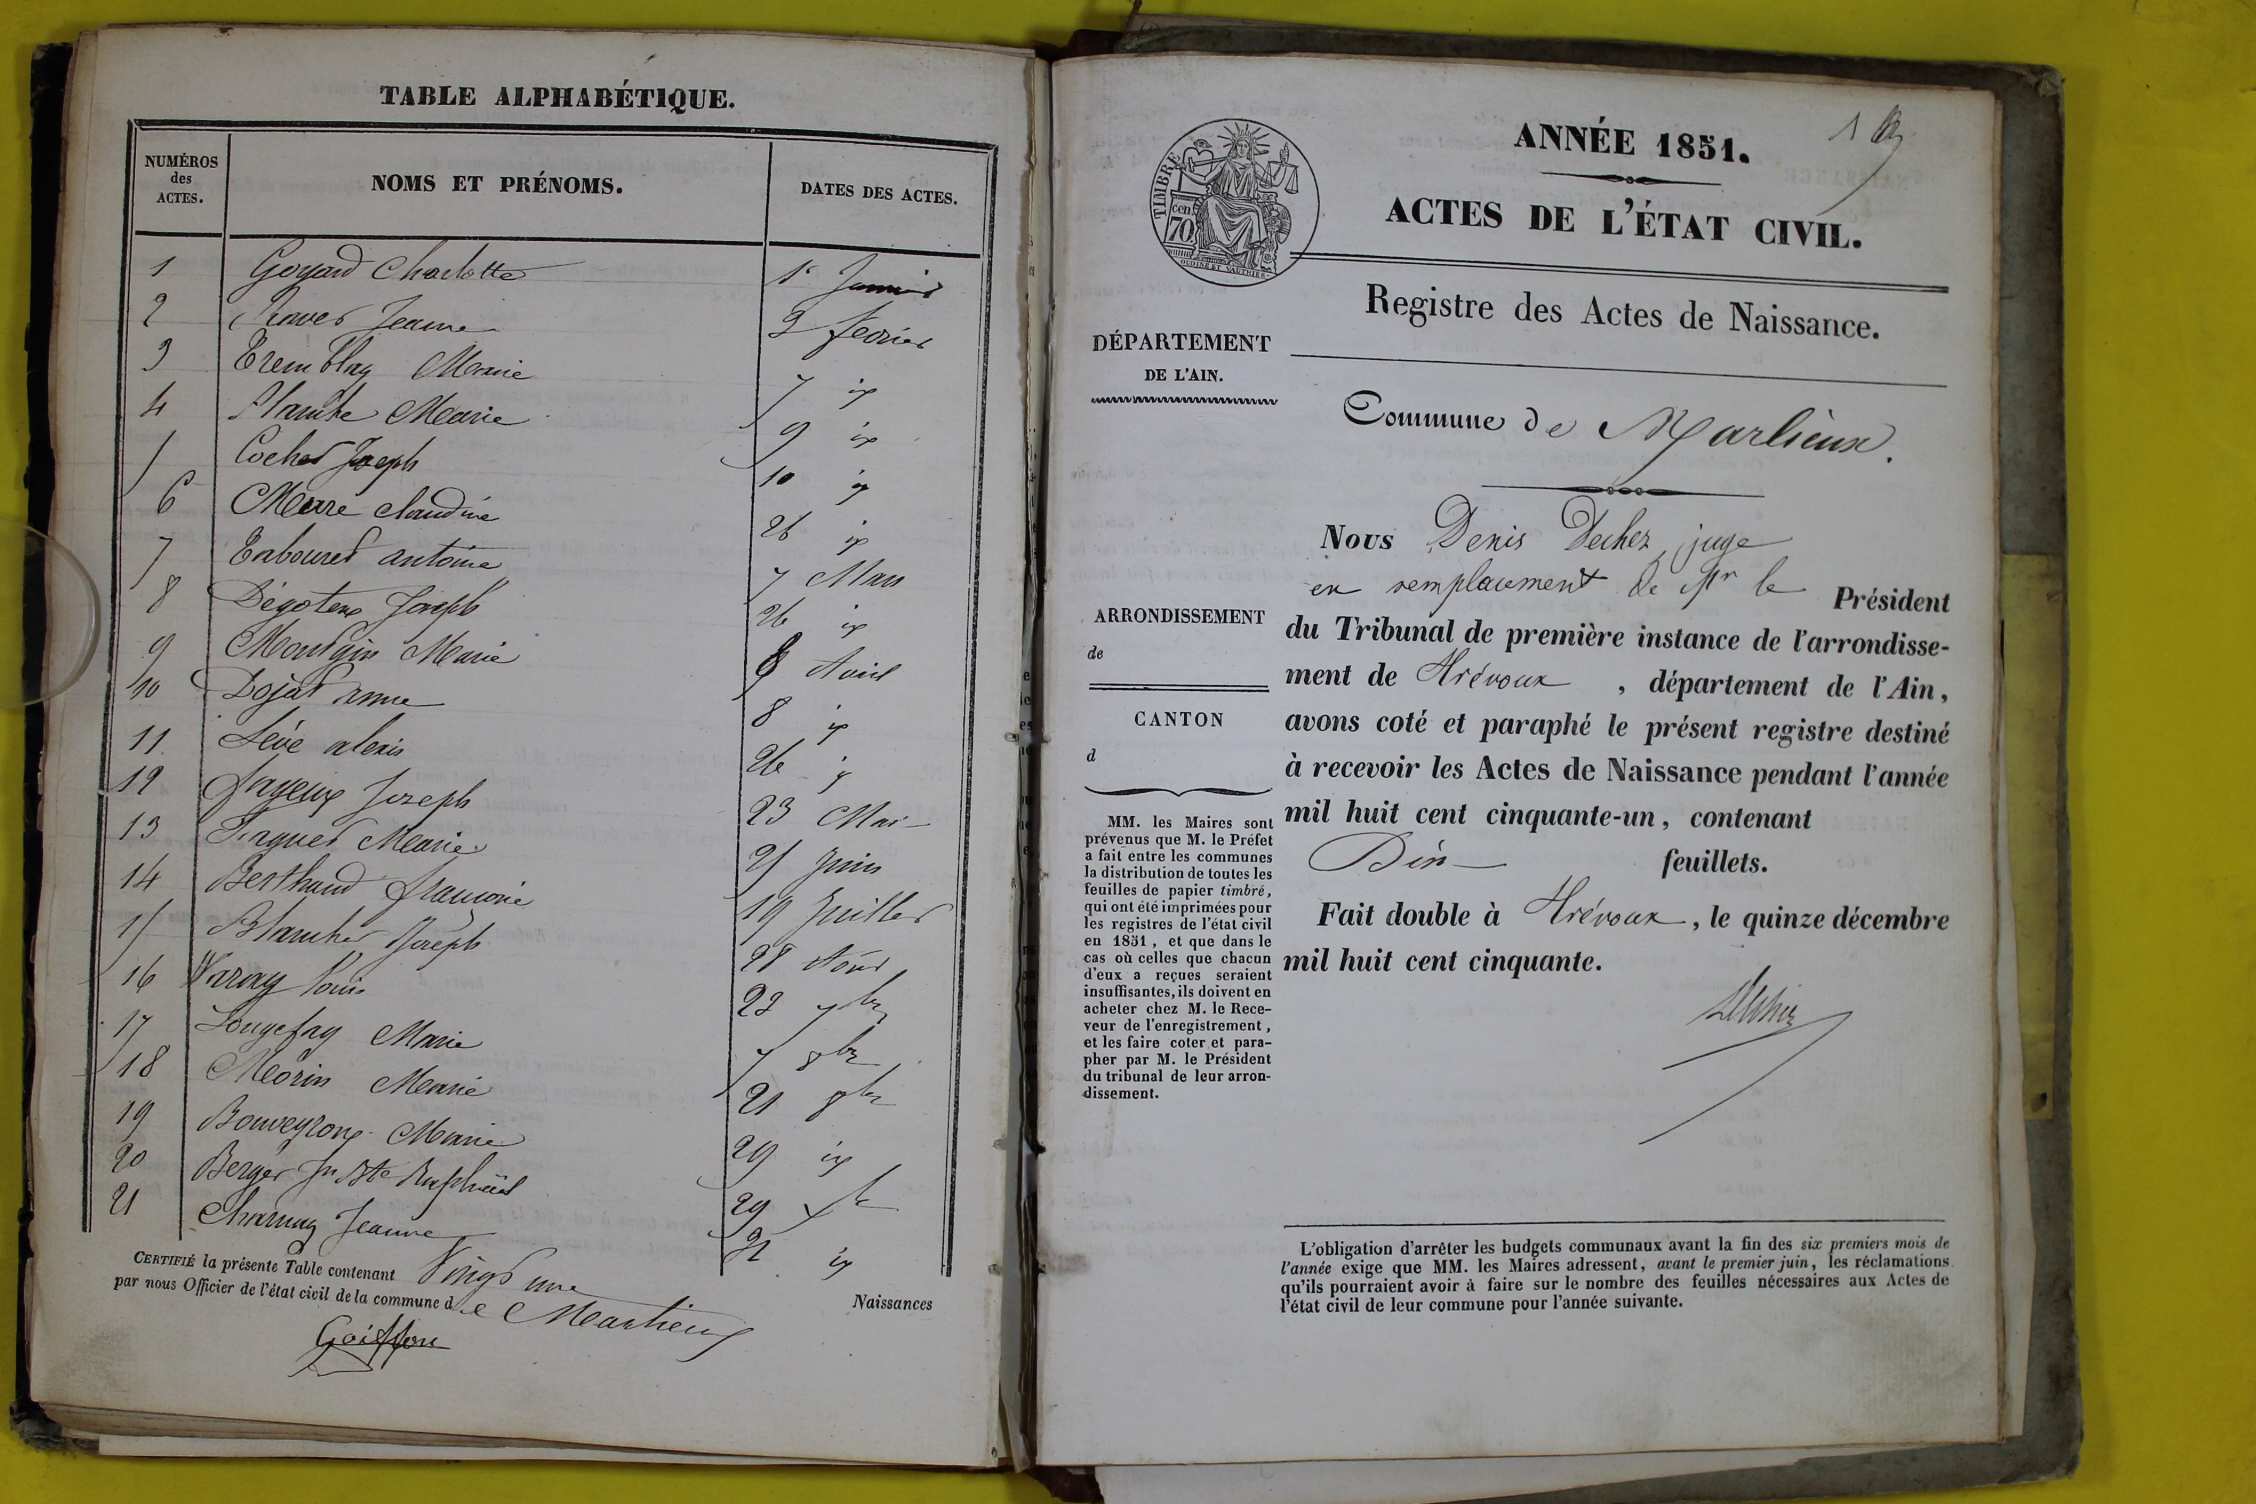 TABLE ALPHABÉTIQUE.
NUMÉROS
des
ACTES.
NOMS ET PRÉNOMS.
DATES DES ACTES.
1 Goyard Charlotte 1r Janvier
2 Jeanne 2 fevrier
3 Tremblay Marie 7 id
4 Planche Marie 9 id
5 Cochet Joseph 10 id
6 Claudine 26 id
7 antoine 7 Mars
8 Joseph 26 id
9 Marie 8 Avril
10 Dojat anne 8 id
11 Séve alexis 26 id
12 Fayeux Joseph 23 Mai
13 Marie 25 Juin
14 Berthaud françoise 19 Juillet
15 Blanchet Joseph 28 Aout
16 Varay Louis 22 7bre
17 Longefay Marie 7 8bre
18 Morin Marie 21 8bre
19 Bouveyron Marie 29 id
20 Berger Jn Bte Raphaël 29 Xbre
21 Charnay Jeanne 31 id
CERTIFIÉ la présente Table contenant Vingt une Naissances
par nous Officier de l'état civil de la commune de Marlieux
Goiffon
1
ANNÉE 1851.
ACTES DE L'ÉTAT CIVIL.
TIMBRE
70 cen.
OUDINÉ ET VAUTHIER
Registre des Actes de Naissance.
DÉPARTEMENT
DE L'AIN.
Commune de Marlieux.
Nous Denis Dechez, juge
en remplacement de Mr le Président
ARRONDISSEMENT
de
CANTON
d
du Tribunal de première instance de l'arrondisse-
ment de Trévoux , département de l'Ain,
avons coté et paraphé le présent registre destiné
à recevoir les Actes de Naissance pendant l'année
mil huit cent cinquante-un, contenant
Dix feuillets.
Fait double à Trévoux, le quinze décembre
mil huit cent cinquante.
Dechez
MM. les Maires sont
prévenus que M. le Préfet
a fait entre les communes
la distribution de toutes les
feuilles de papier timbré,
qui ont été imprimées pour
les registres de l'état civil
en 1851, et que dans le
cas où celles que chacun
d'eux a reçues seraient
insuffisantes, ils doivent en
acheter chez M. le Rece-
veur de l'enregistrement,
et les faire coter et para-
pher par M. le Président
du tribunal de leur arron-
dissement.
L'obligation d'arrêter les budgets communaux avant la fin des six premiers mois de
l'année exige que MM. les Maires adressent, avant le premier juin, les réclamations
qu'ils pourraient avoir à faire sur le nombre des feuilles nécessaires aux Actes de
l'état civil de leur commune pour l'année suivante.